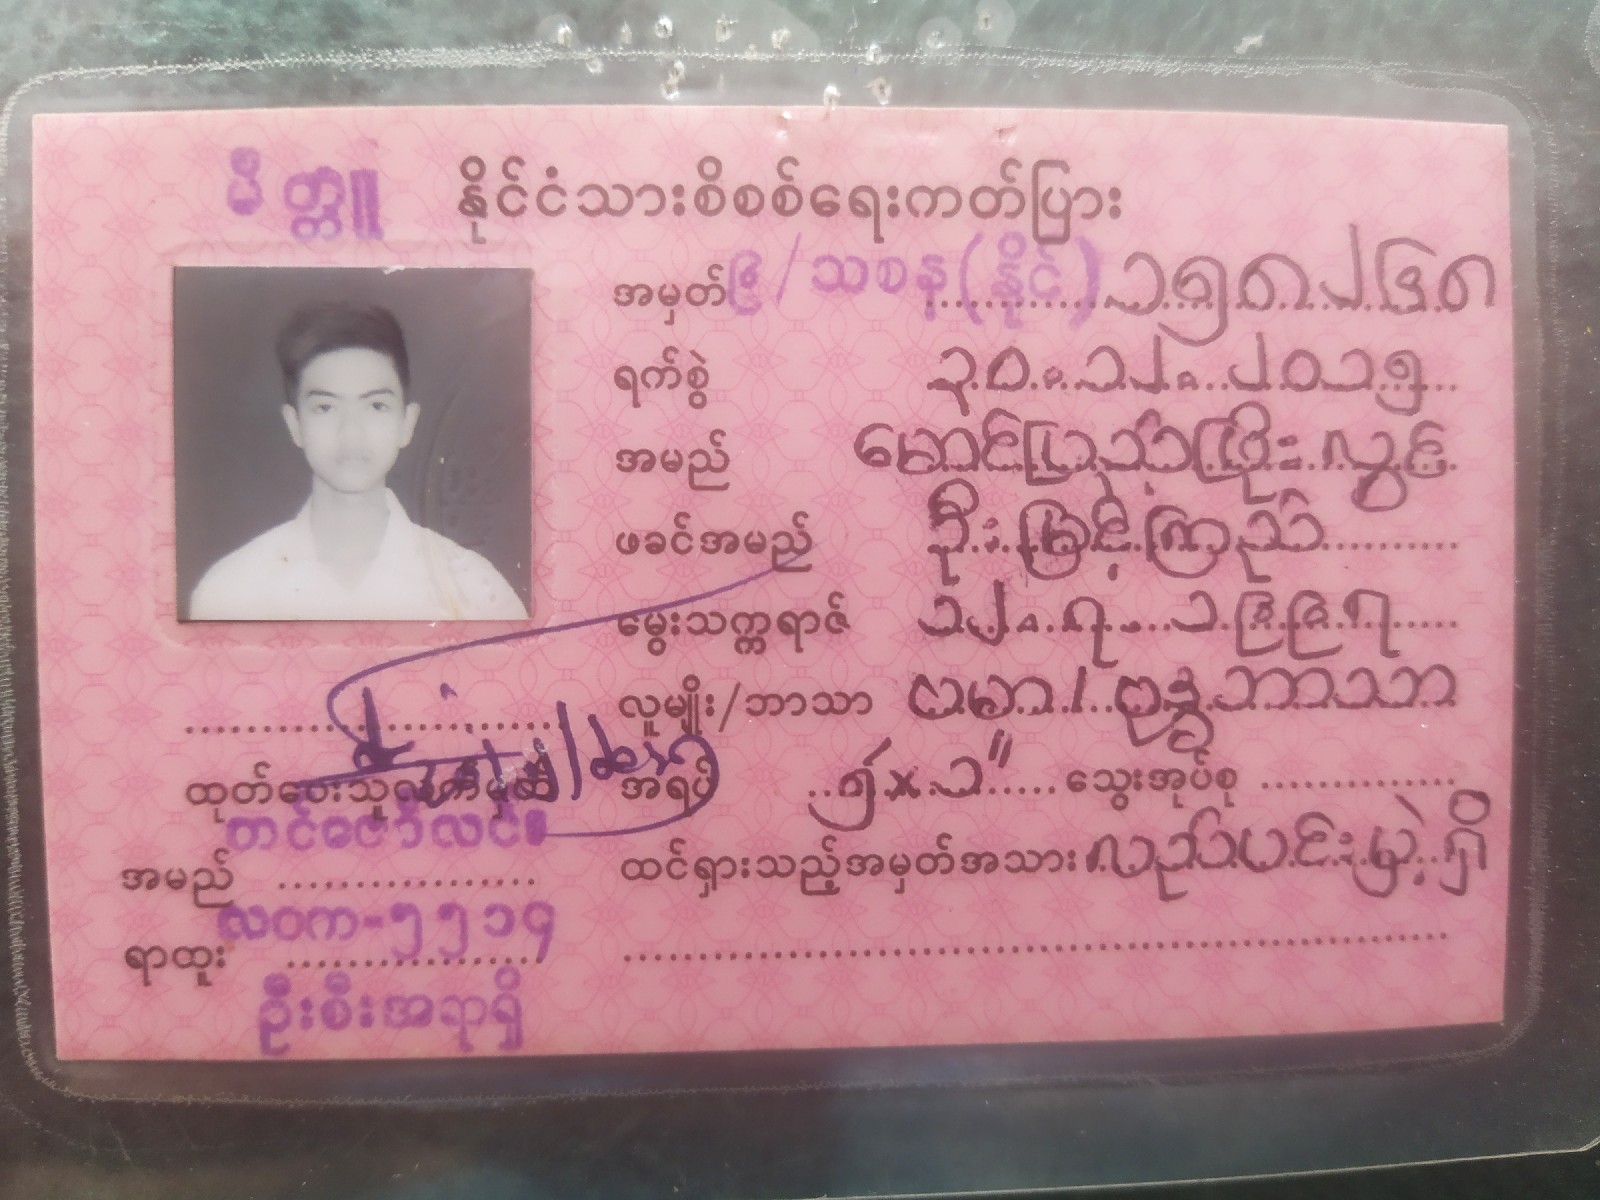 မိတ္တူ နိုင်ငံသားစိစစ်ရေးကတ်ပြား
အမှတ် ၉/သစန(နိုင်) ၁၅၈၂၆၈
ရက်စွဲ ၃၀.၁၂.၂၀၁၅
အမည် မောင်ပြည့်ဖြိုးလွင်
ဖခင်အမည် ဦးမြင့်ကြည်
မွေးသက္ကရာဇ် ၁၂.၇.၁၉၉၇
လူမျိုး/ဘာသာ ဗမာ/ဗုဒ္ဓဘာသာ
အရပ် ၅'x၁" သွေးအုပ်စု
ထင်ရှားသည့်အမှတ်အသား လည်ပင်းမှဲ့ရှိ
ထုတ်ပေးသူလက်မှတ်
တင်ဇော်လင်း
အမည်
လဝက-၅၅၁၄
ရာထူး
ဦးစီးအရာရှိ